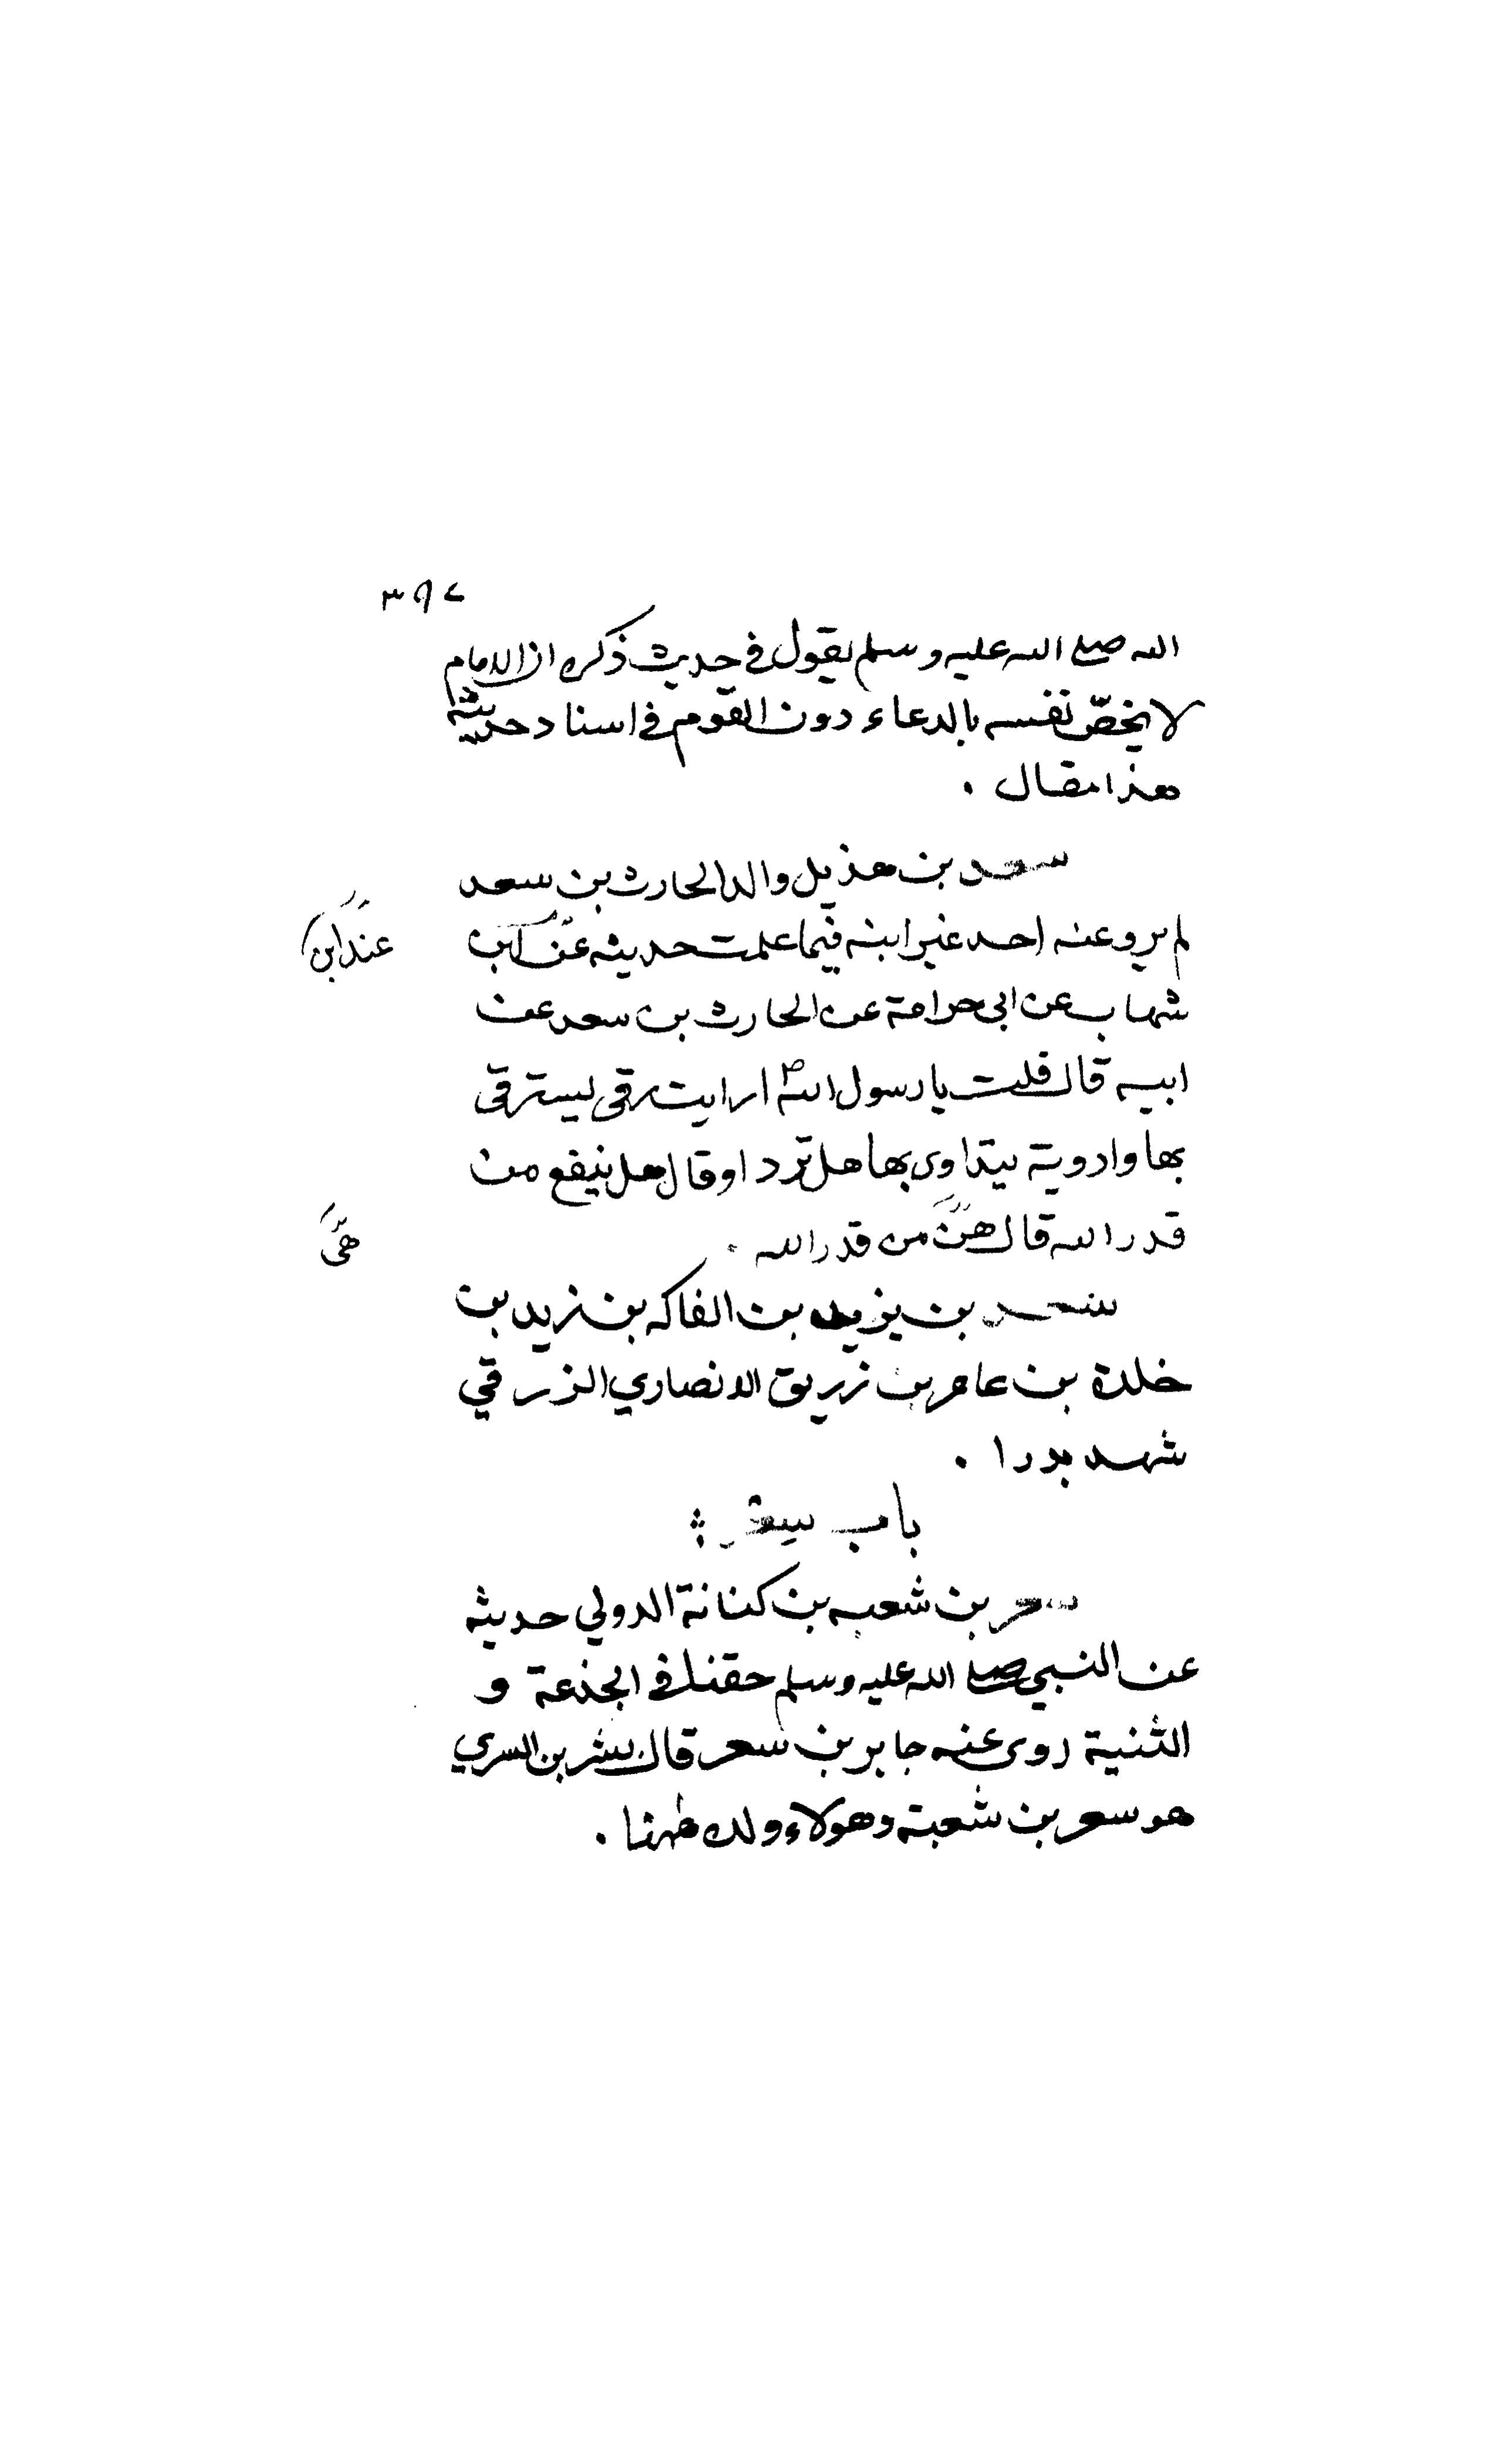 ٣٩٧
الله صلے الله عليه وسلم يقول في حديث ذكره ان الامام
لا يخصّ نفسه بالدعاء دون القوم في اسناد حديثه
هذا مقال .
سعد بن هذيل والد الحارث بن سعد
لم يرو عنه احد غير ابنه فيما علمت حديثه عن ابن
عند ابن
شهاب عن ابى حرامة عن الحارث بن سعد عن
ابيه قال قلت يا رسول الله ارايت رقى يسترقى
بها وادوية يتداوى بها هل ترد او قال هل ينفع من
قدر الله قال هنّ من قدر الله .
هىّ
سعد بن يزيد بن الفاكه بن زيد بن
خلدة بن عامر بن زريق الانصاري الزرقي
شهد بدرا .
باب سعر
سعر بن شعبه بن كنانة الدولي حديثه
عن النبي صلے الله عليه وسلم حقنا في الجذعة و
الثنية روى عنه جابر بن سعر قال بشر بن السري
هو سعر بن شعبة وهولاء ولده ههنا .